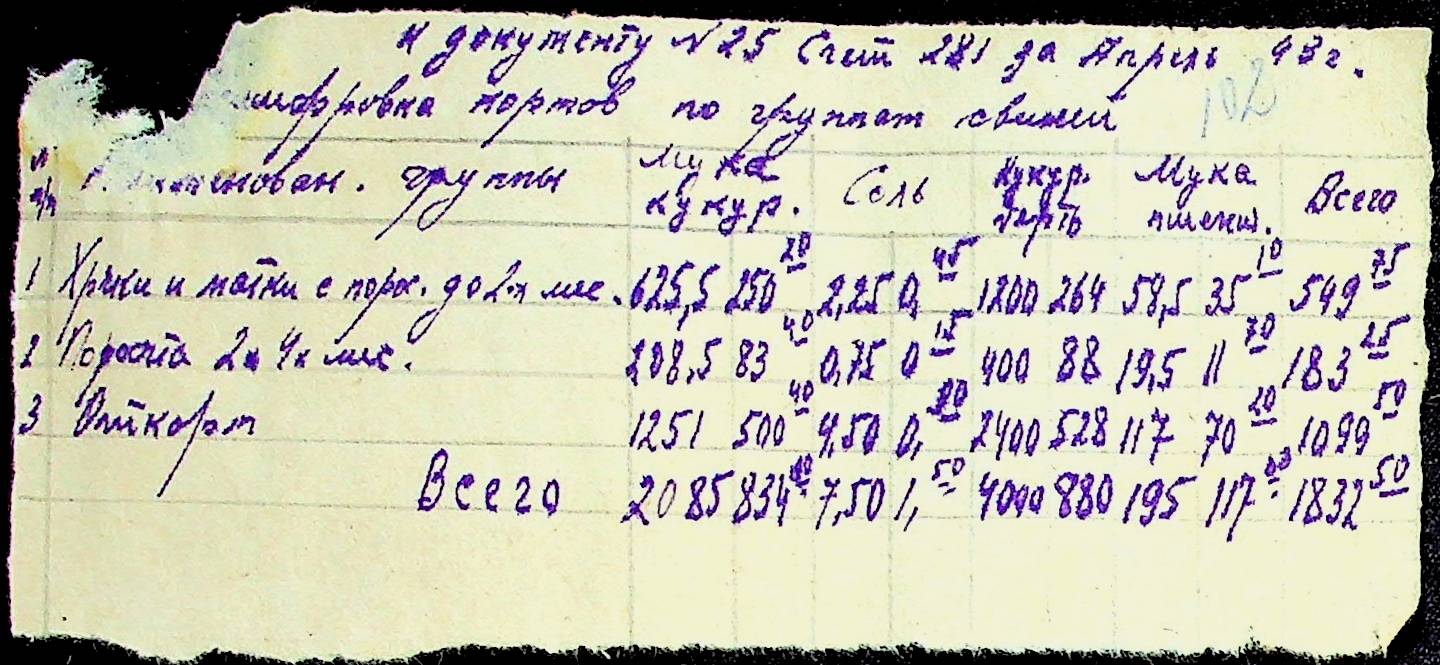 К документу № 25 Счет 281 за Апрель 43 г.
102
шифровка кормов по группам свиней
№ п/п Наименован. группы Мука кукур. Соль Кукур. дерть Мука пшенич. Всего
1 Хряки и матки с порос. до 2х мес. 625,5 250 20 2,25 0, 45 1200 264 58,5 35 10 549 75
2 Поросята 2х 4х мес. 208,5 83 40 0,75 0 15 400 88 19,5 11 70 183 25
3 Откорм 1251 500 40 4,50 0, 90 2400 528 117 70 20 1099 50
Всего 2085 834 00 7,50 1, 50 4000 880 195 117 00 1832 50